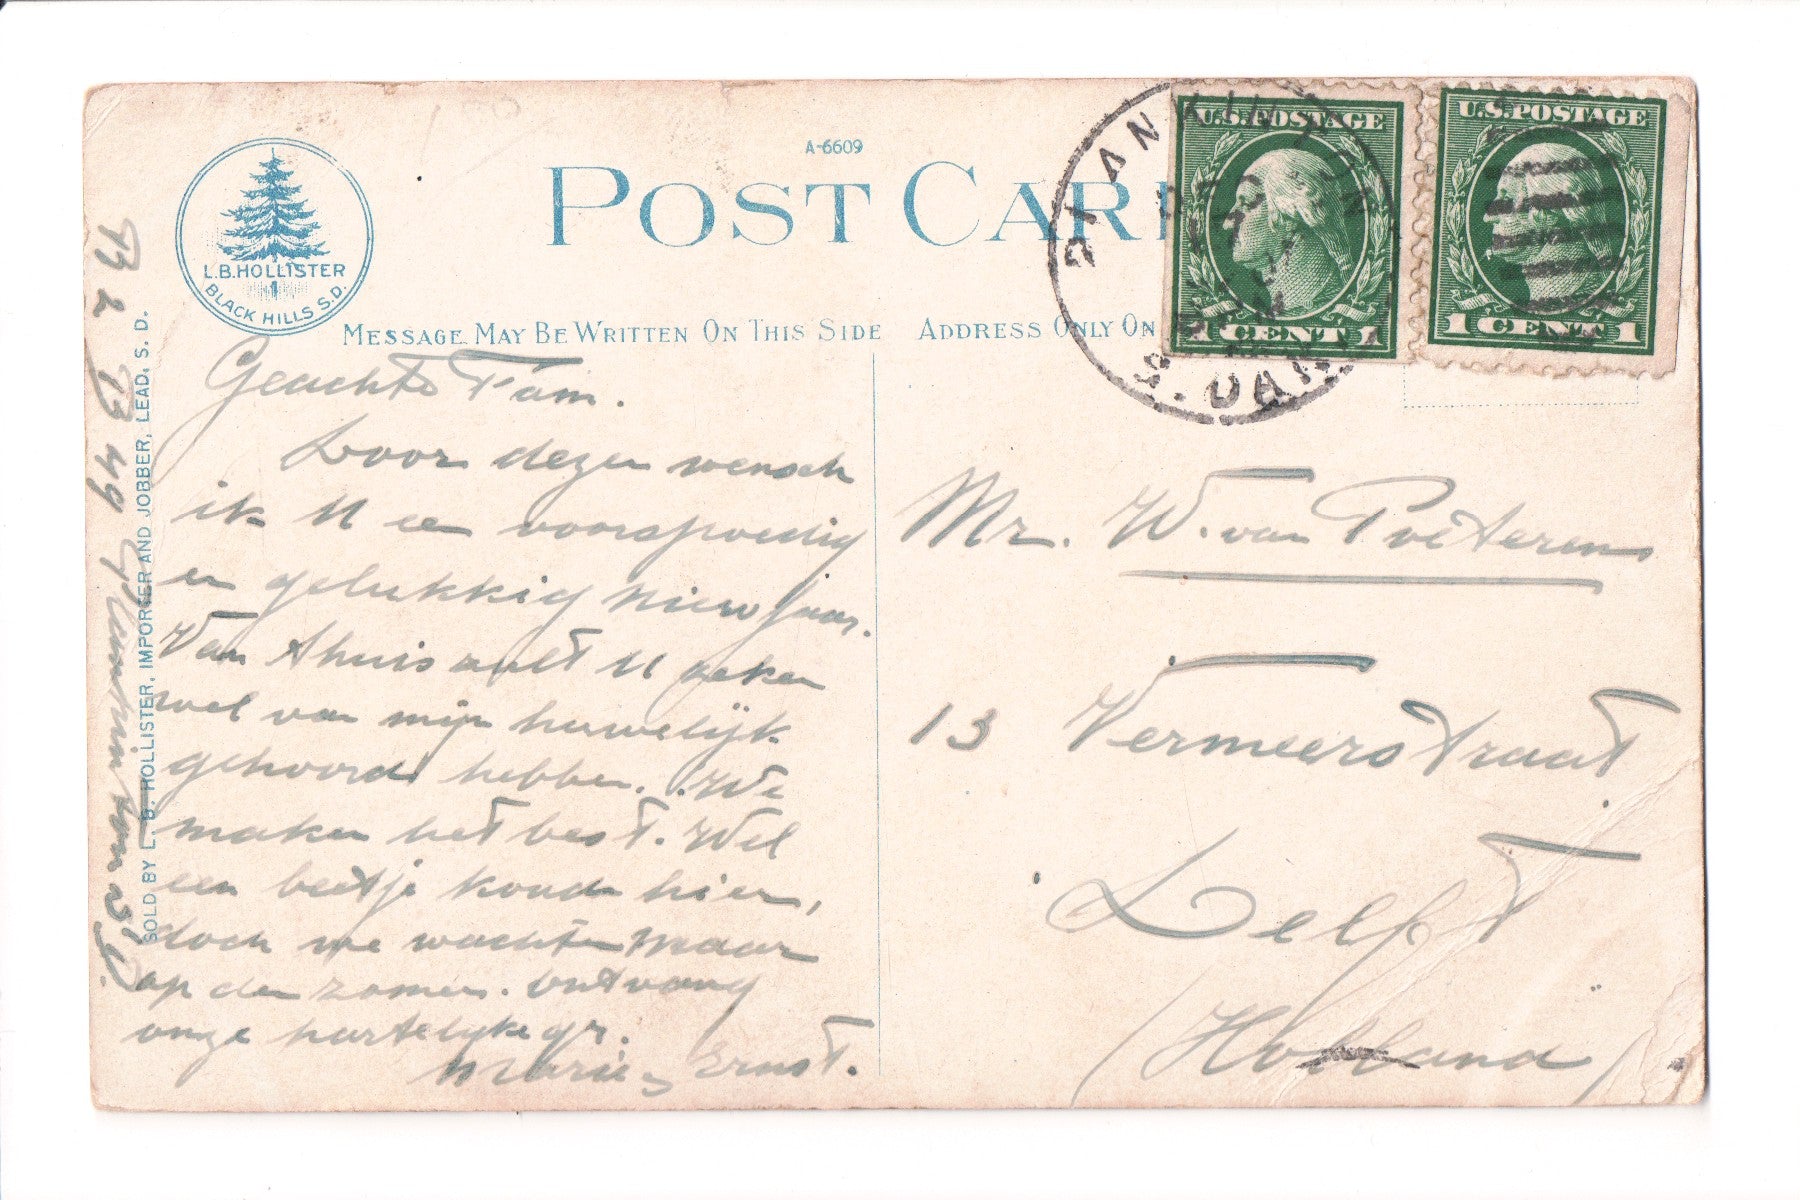 A-6609
POST CAR
L.B. HOLLISTER
1
BLACK HILLS S.D.
MESSAGE MAY BE WRITTEN ON THIS SIDE
ADDRESS ONLY ON
PLANKINTON
DEC
17
S. DAK.
U.S. POSTAGE
1 CENT 1
U.S. POSTAGE
1 CENT 1
Geachte Fam.
Door dezen wensch
ik U een voorspoedig
en gelukkig nieuwjaar.
Van thuis zult U zeker
wel van mijn huwelijk
gehoord hebben. We
maken het best. Wel
een beetje koud hier,
doch we wachten maar
op den zomer. Ontvang
onze hartelijke gr.
Marie & Ernst.
Mr. W. van Poeterens
13 Vermeerstraat
Delft
(Holland)
B 2 B 49
SOLD BY L. B. HOLLISTER, IMPORTER AND JOBBER, LEAD, S. D.